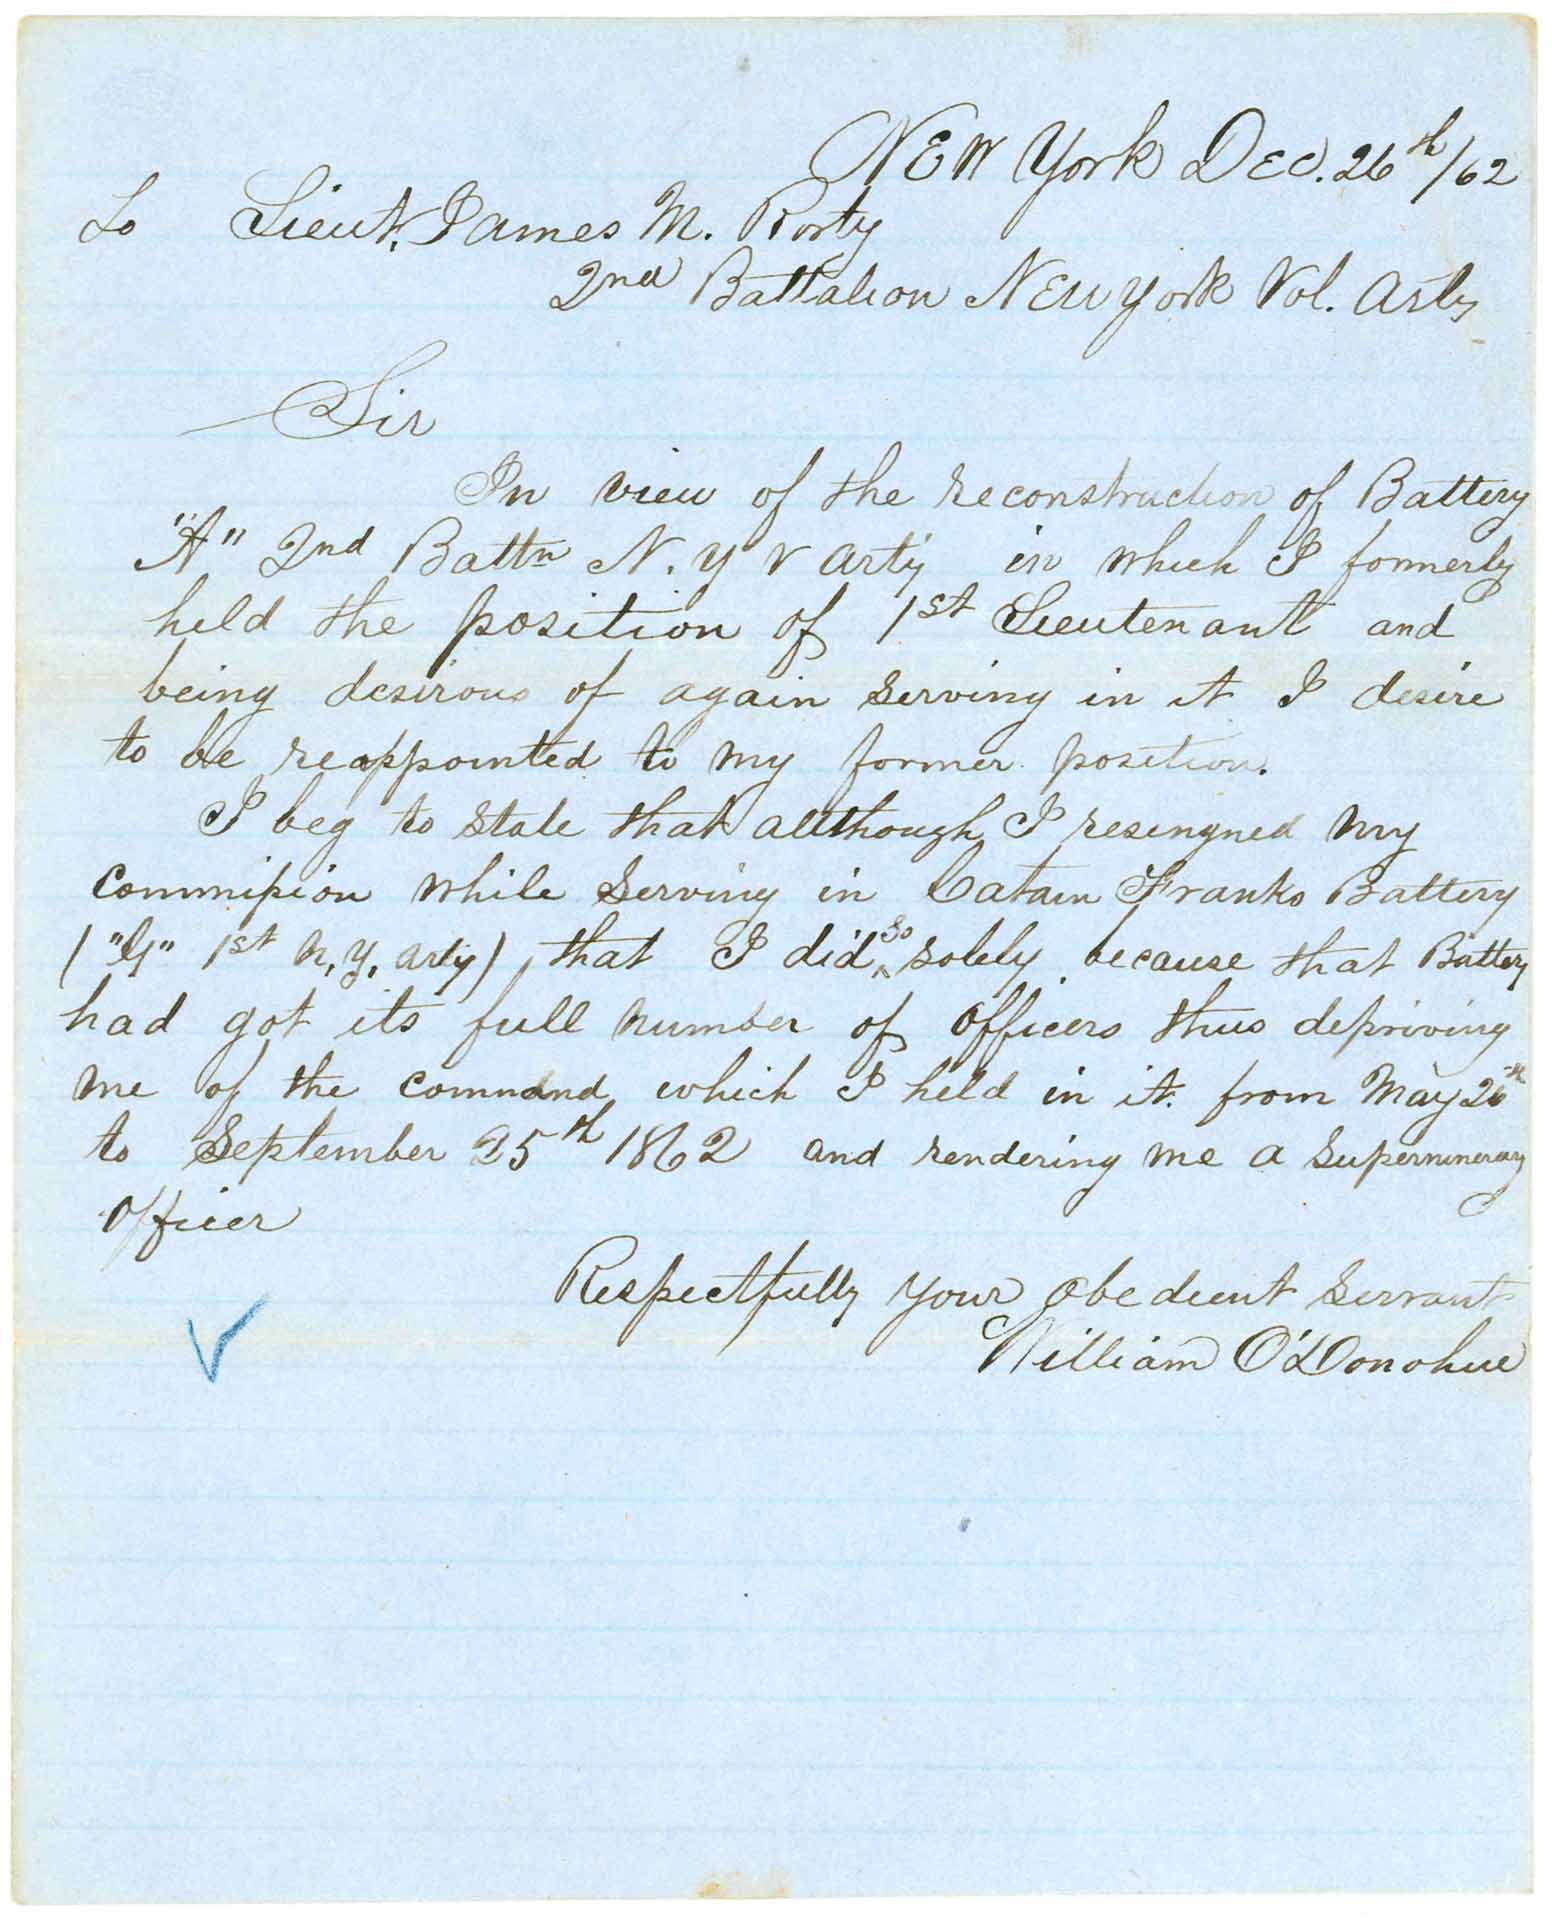 New York Dec. 26th/62
To Lieut. James M. Rorty
2nd Battalion New York Vol. Arty
Sir
In view of the reconstruction of Battery
"A" 2nd Battn N. Y V Arty in which I formerly
held the position of 1st Lieutenant and
being desirous of again serving in it I desire
to be reappointed to my former position.
I beg to state that allthough I resingned my
Commission while Serving in Catain Franks Battery
("G" 1st N, Y, Arty) that I did so solely because that Battery
had got its full number of Officers thus depriving
me of the command which I held in it from May 26th
to September 25th 1862 and rendering me a Supernumerary
Officer
Respectfully Your Obedient Servant
William O'Donohue